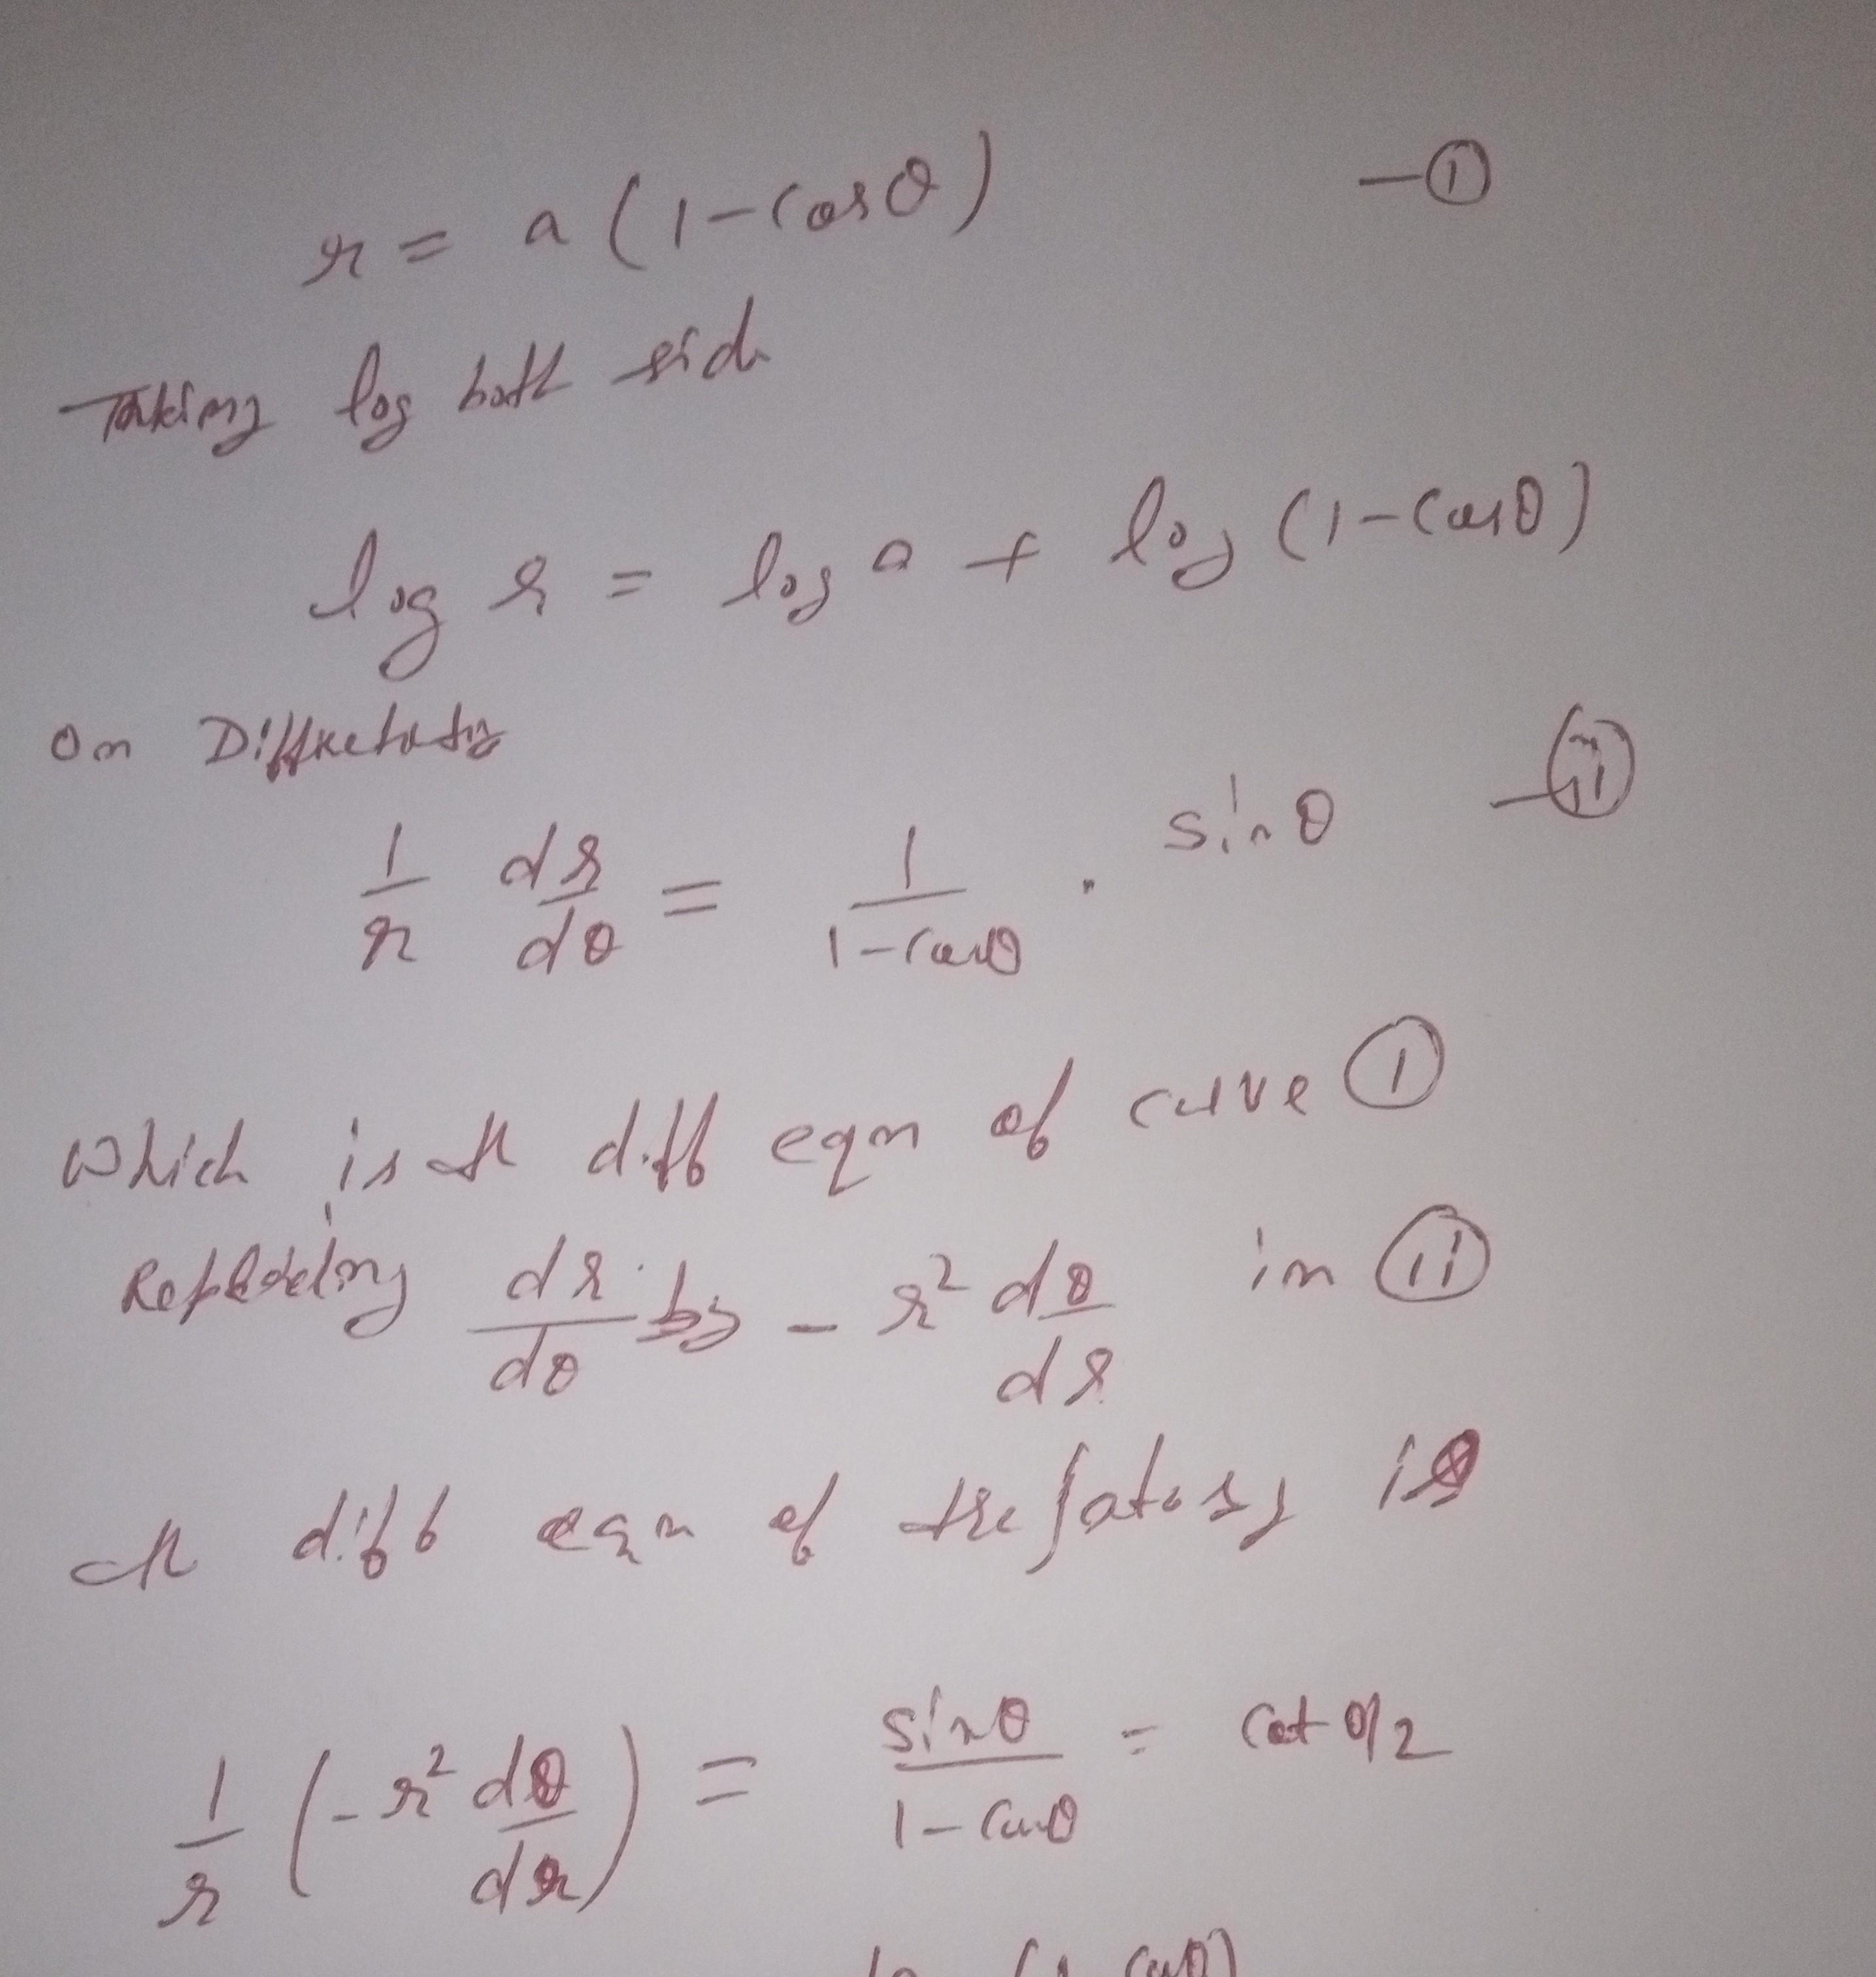 r = a (1 - Cosθ) - ①
Taking log both side
log r = log a + log (1 - Cosθ)
on
1/r dr/dθ = 1/(1 - Cosθ) . sinθ - ⑪
Which is the diff eqn of curve ①
dr/dθ by - r² dθ/dr in ⑪
the diff eqn of trajatory is
1/r (- r² dθ/dr) = sinθ/(1 - Cosθ) = Cot θ/2